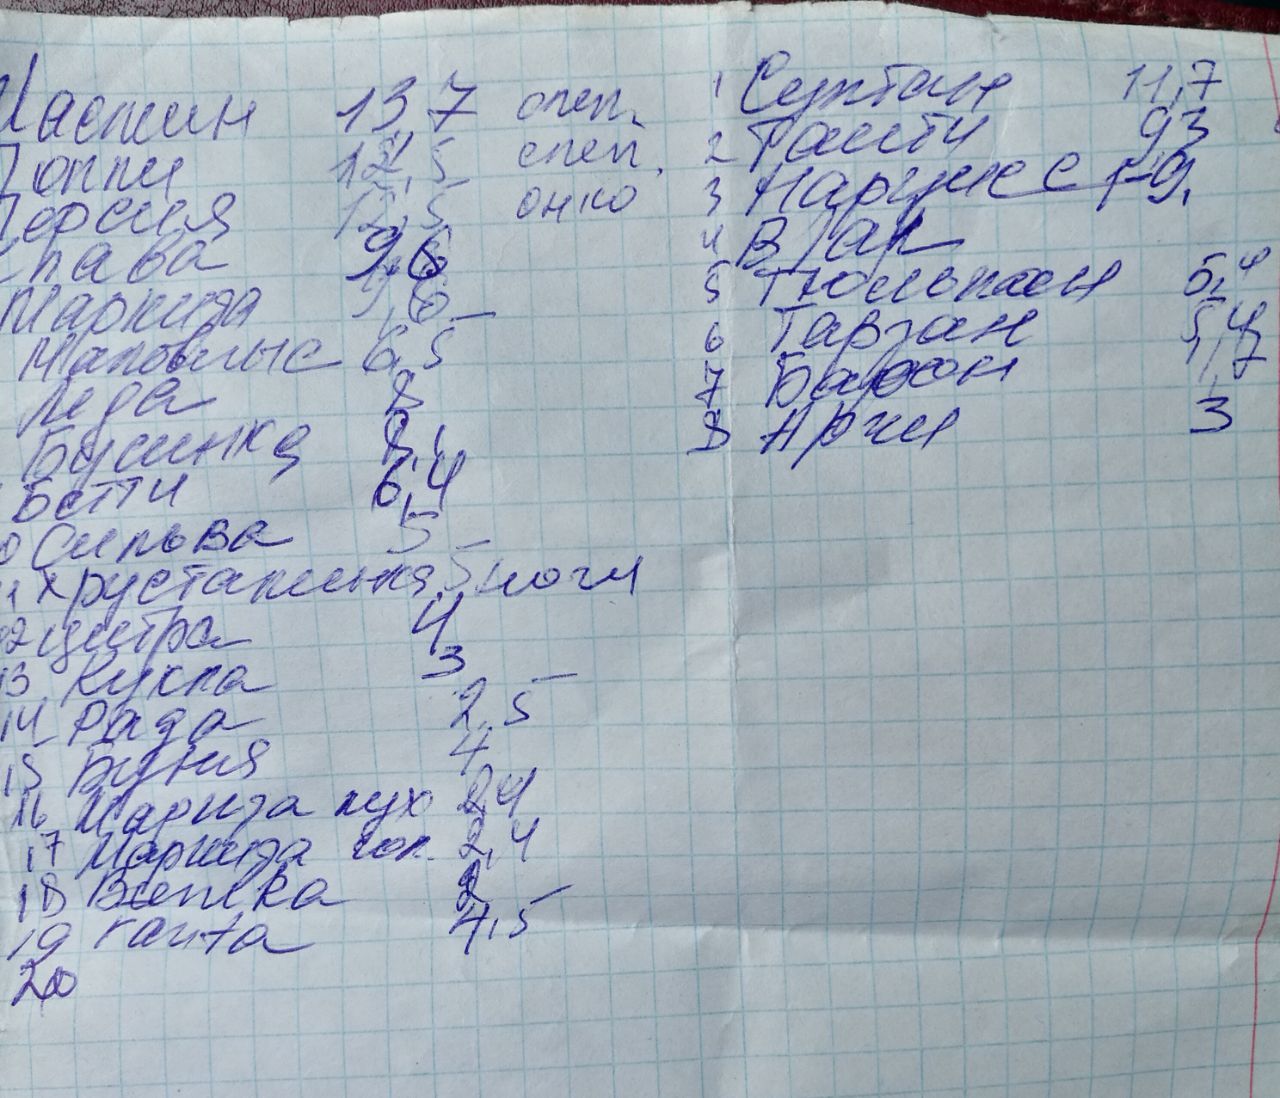 13,7 слеп.
Поппи 12,5 слеп.
Персия 12,5 онко
Слава 9,6
Маркиза 9,6
6,5
Леда 8
Бусинка 8,1
Бетти 6,4
10 Сильва 5
11 Хрустальная 5 ноги
12 Цитра 4
13 Кукла 3
14 Рада 2,5
15 Буня 4
16 Маркиза пух 2,4
17 Маркиза гол. 2,4
18 2
19 4,5
20
1 Султан 11,7
2 9,3
3 Нарцисс
4
5 Тюльпан 5,4
6 Тарзан 5,4
7 Барон 1,7
8 Арчи 3